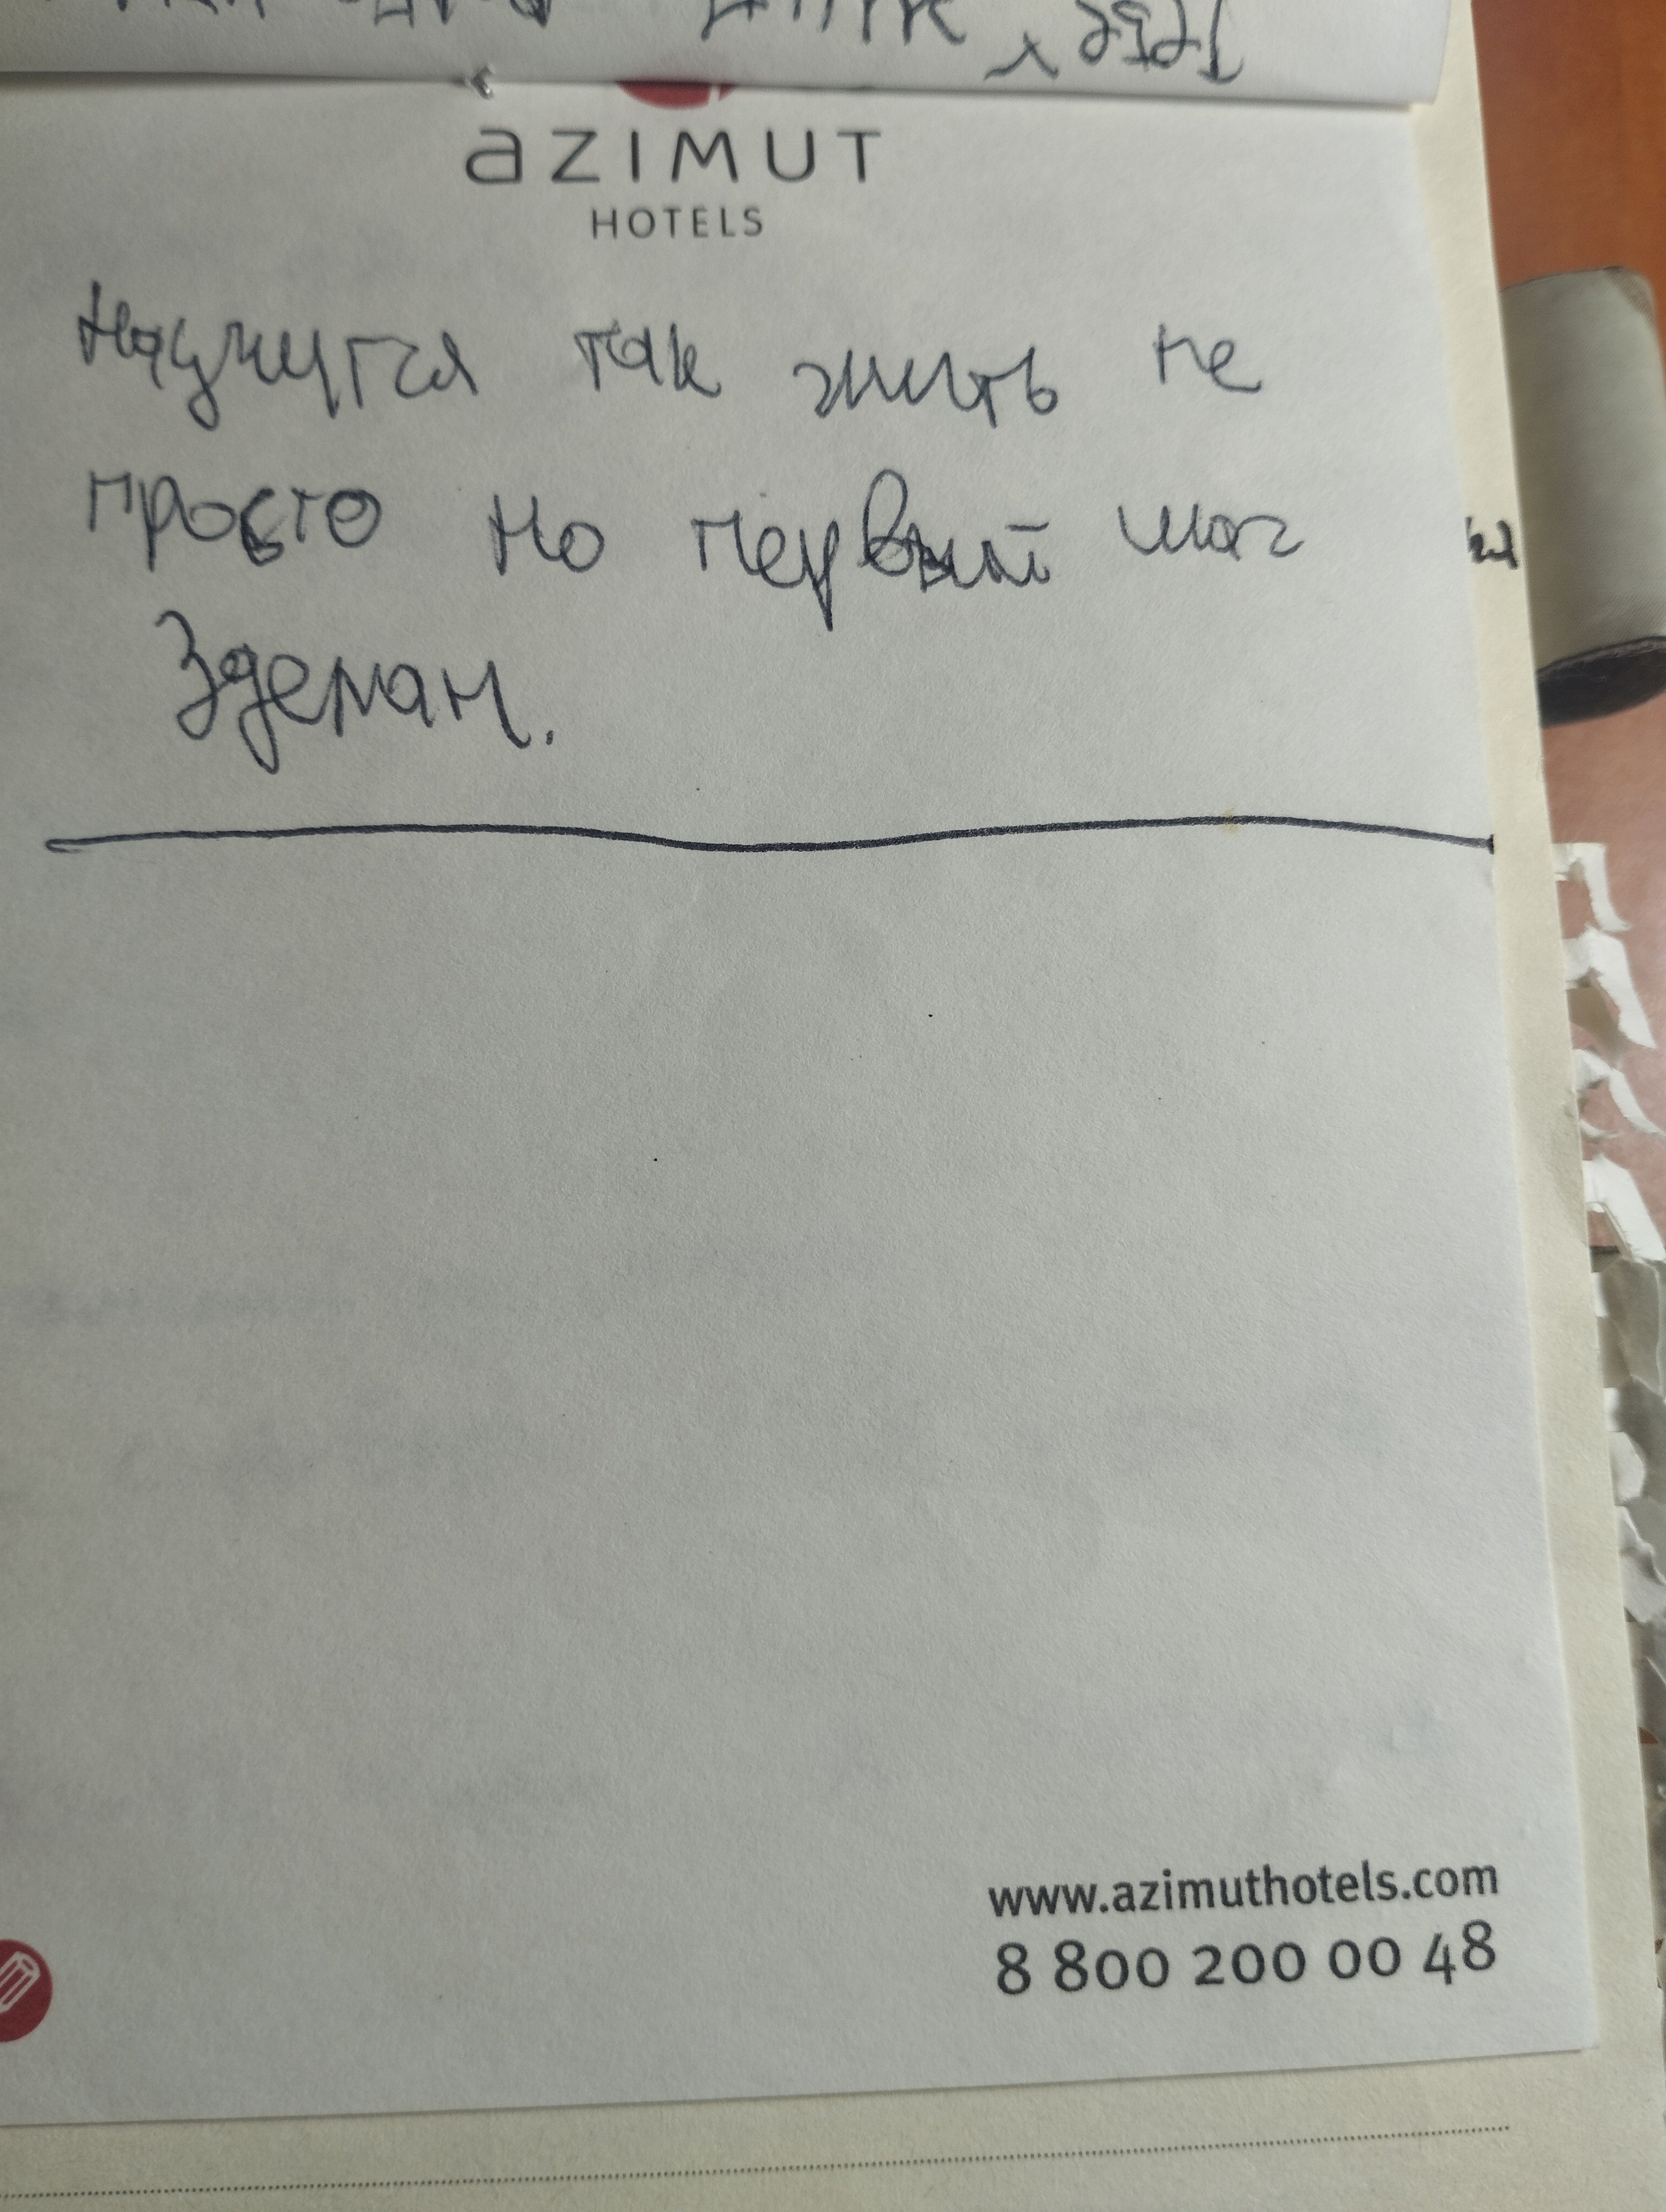 azimut
HOTELS
Научутся так жить не
просто но первый шаг
Зделан.
www.azimuthotels.com
8 800 200 00 48